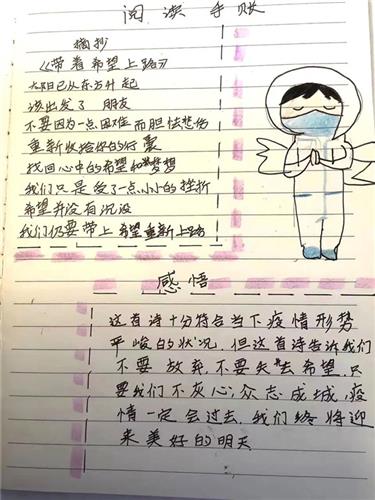 阅读手账
摘抄
《带着希望上路》
太阳已从东方升起
该出发了 朋友
不要因为一点困难而胆怯悲伤
重新收给你的行囊
找回心中的希望和梦想
我们只是受了一点小小的挫折
希望并没有沉没
我们仍要带上希望重新上路
感悟
这首诗十分符合当下疫情形势
严峻的状况,但这首诗告诉我们
不要放弃,不要失去希望.只
要我们不灰心,众志成城,疫
情一定会过去.我们终将迎
来美好的明天